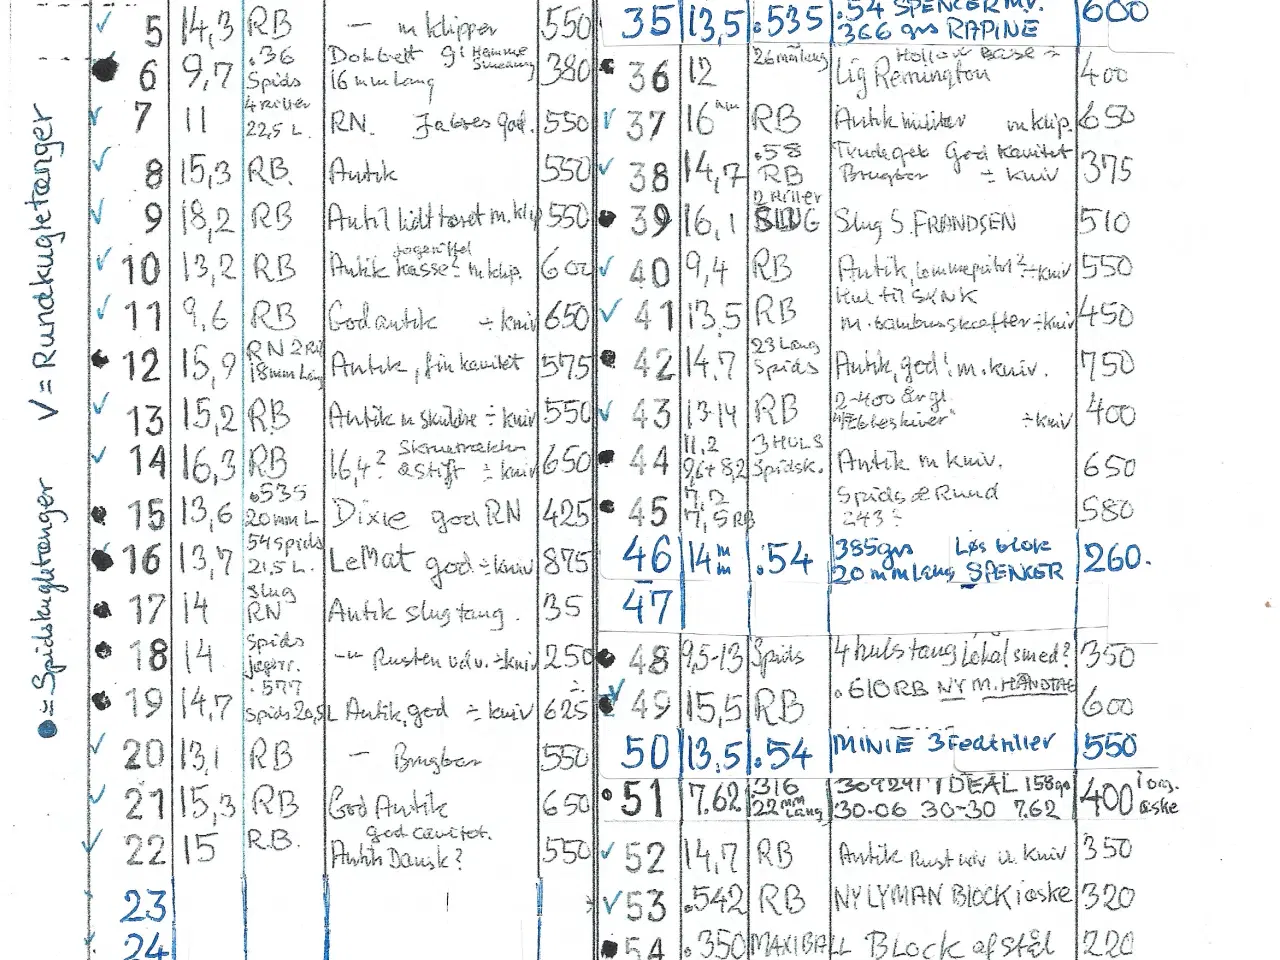 V = Rundkugletænger
● = Spidskugletænger
5 14,3 RB — m klipper 550
6 9,7 .36 Spids Dobbelt 16 mm Lang 380
7 11 4 riller 22,5 L. RN. 550
8 15,3 RB. Antik 550
9 18,2 RB m. klip 550
10 13,2 RB Antik m klip. 600
11 9,6 RB God antik ÷ kniv 650
12 15,9 RN 2 Ril 18mm Lang Antik, fin kavitet 575
13 15,2 RB Antik m ÷ kniv 550
14 16,3 RB 16,4? & Stift ÷ kniv 650
15 13,6 .535 20mm L Dixie god RN 425
16 13,7 54 Spids 21,5 L. LeMat god ÷ kniv 875
17 14 Slug RN Antik slug tang. 35
18 14 Spids —"— Rusten udv. ÷ kniv 250
19 14,7 .577 Spids 20,5 L Antik, god ÷ kniv 625
20 13,1 RB — Brugbar 550
21 15,3 RB God Antik 650
22 15 R.B. god cavitet. Antik Dansk? 550
23
24
35 13,5 .535 .54 SPENCER 366 grs RAPINE 600
36 12 26 mm lang Hollow Base ÷ Lig Remington 400
37 16 mm RB Antik militær m klip. 650
38 14,7 .58 RB God Kavitet Brugbar ÷ kniv 375
39 16,1 2 Riller SLUG Slug S. FRANDSEN 510
40 9,4 RB Antik, ÷ kniv 550
41 13,5 RB ÷ kniv 450
42 14,7 23 Lang Spids Antik, god! m. kniv. 750
43 13-14 RB 2-400 år gl "Æbleskiver" ÷ kniv 400
44 11,2 9,6 + 8,2 3 HULS Spidsk. Antik m kniv. 650
45 7,2 7,5 RB Spids & Rund 243 ÷ 580
46 14 mm .54 385 grs Løs blok 20 mm lang SPENCER 260.
47
48 9,5-13 Spids 4 huls tang Lokal smed? 350
49 15,5 RB .610 RB NY M. HÅNDTAG 600
50 13,5 .54 MINIE 3 Fedtriller 550
51 7.62 .316 22 mm Lang IDEAL 158 grs 30-06 30-30 7.62 400 i org. æske
52 14,7 RB Antik Rust kniv 350
53 .542 RB NY LYMAN BLOCK i æske 320
54 .350 MAXIBALL Block af Stål 220